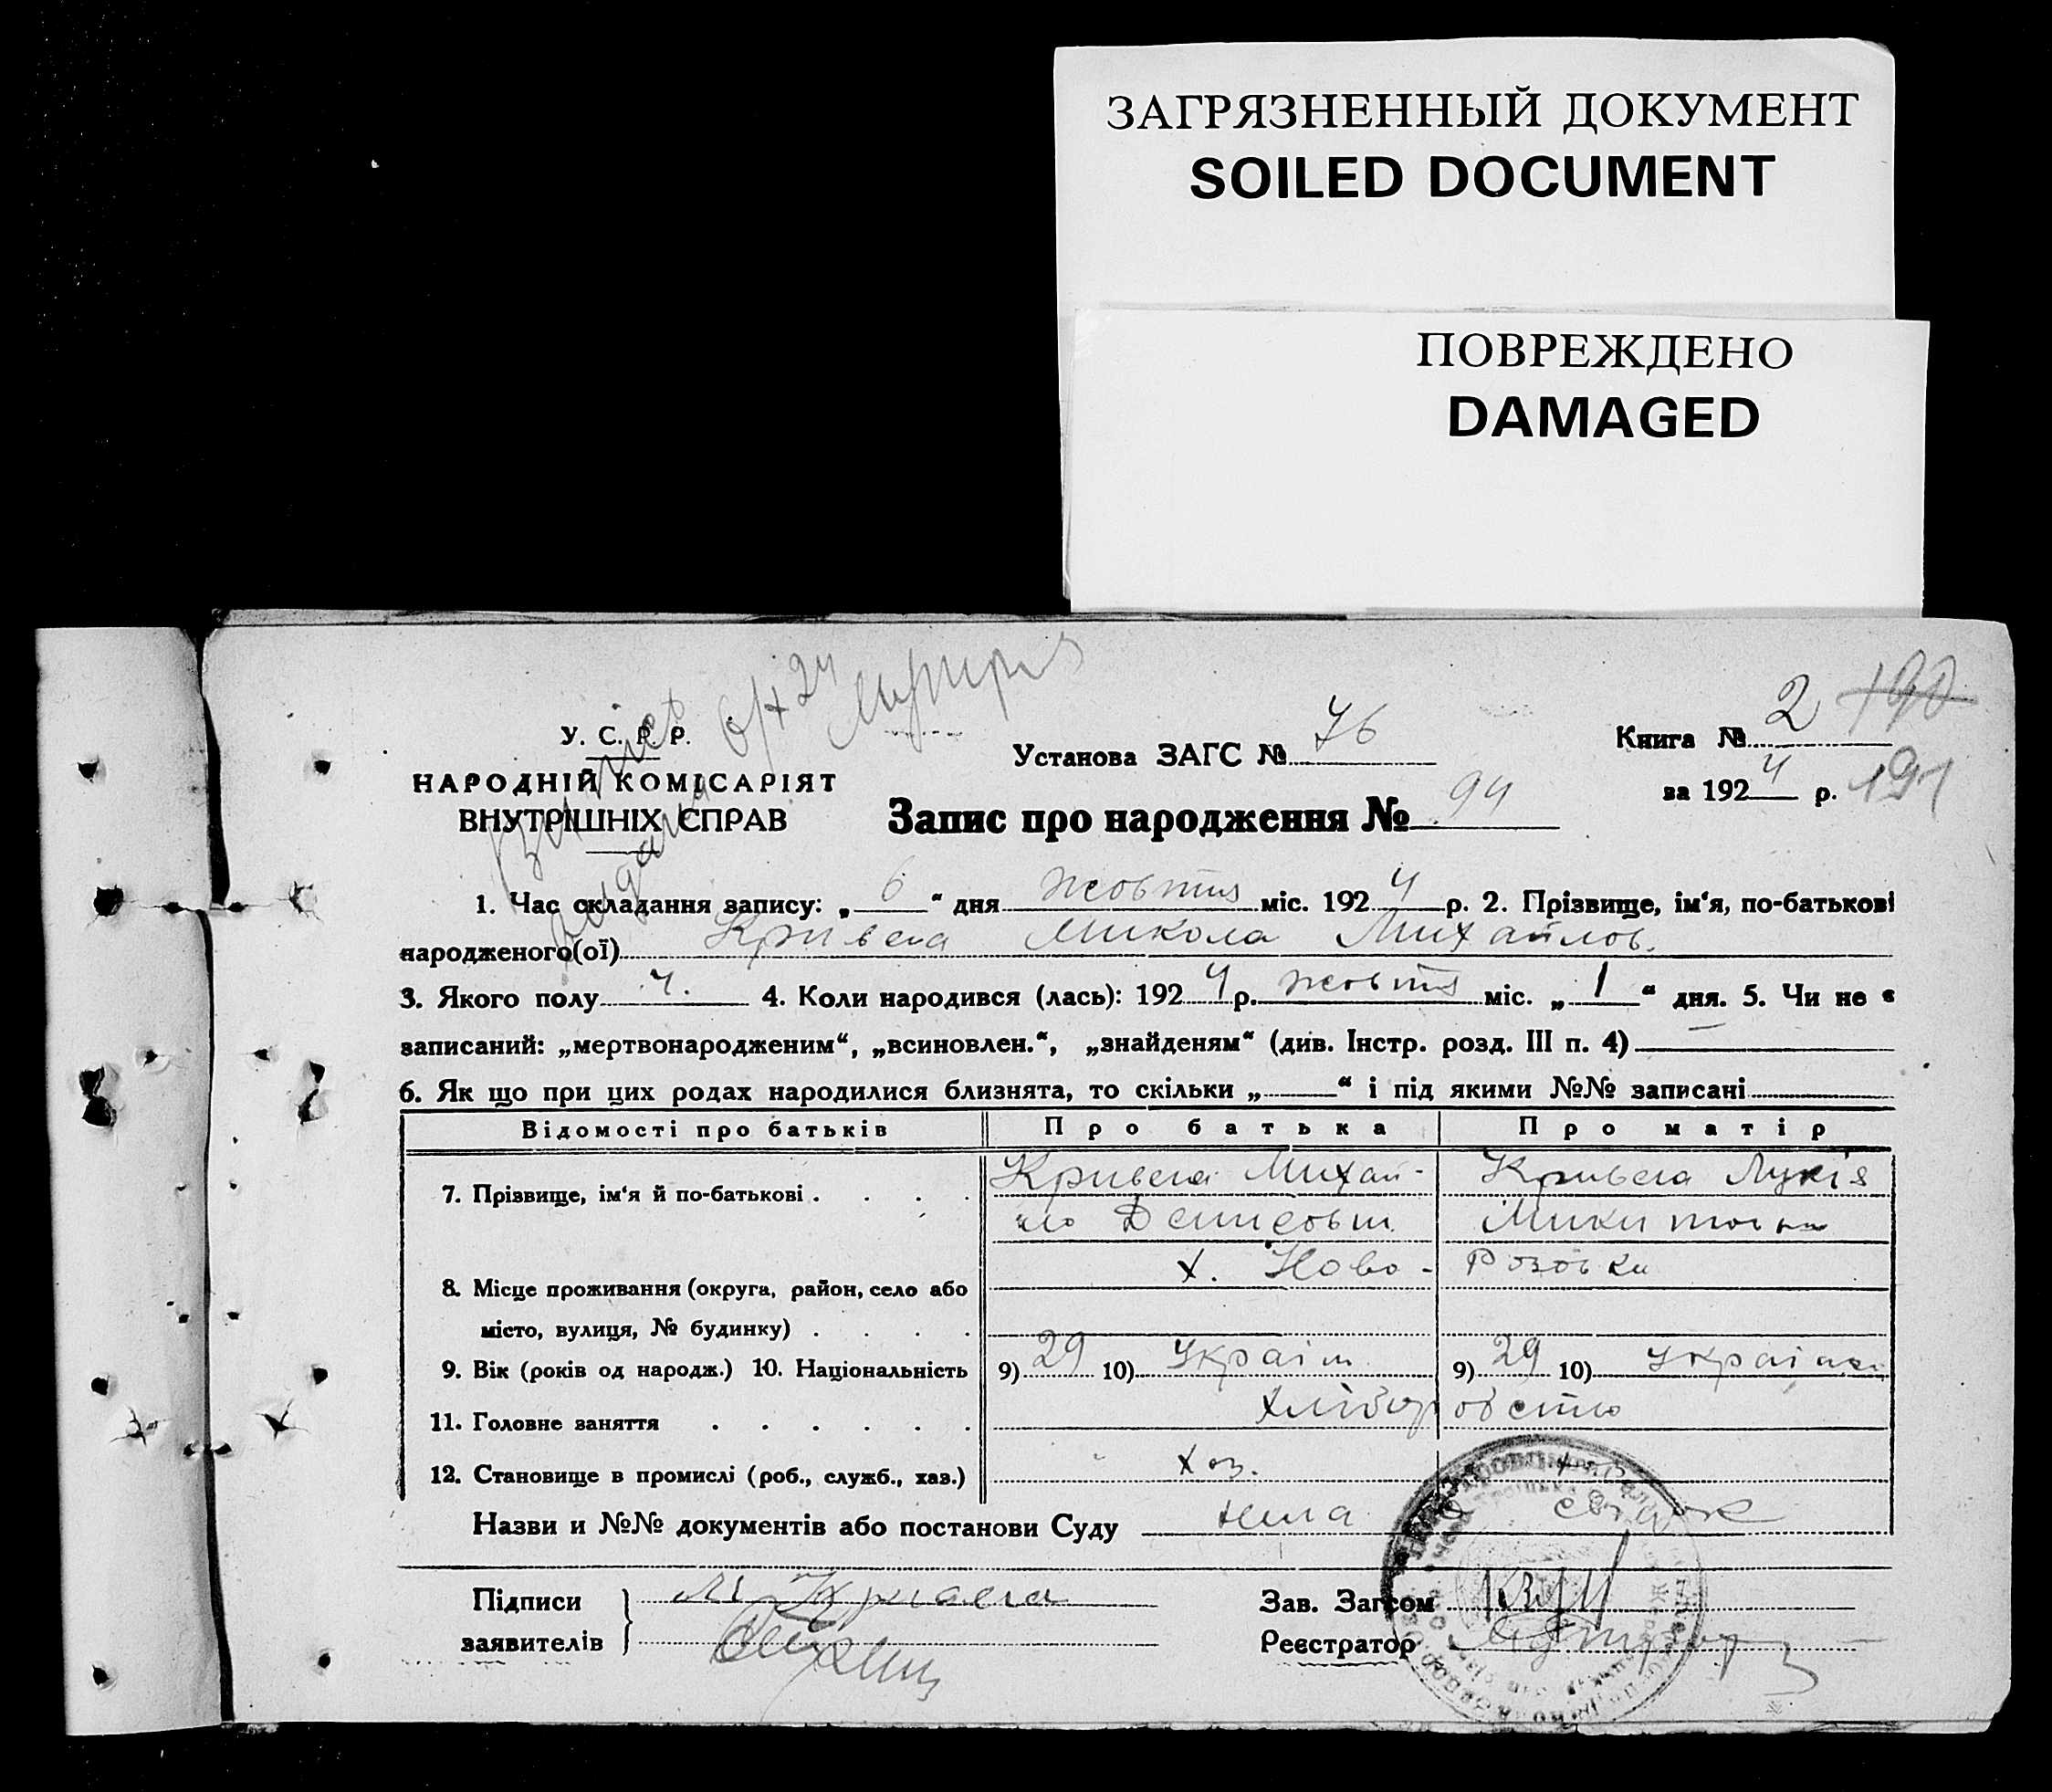 ЗАГРЯЗНЕННЫЙ ДОКУМЕНТ
SOILED DOCUMENT
ПОВРЕЖДЕНО
DAMAGED
У. С. Р. Р.
НАРОДНІЙ КОМІСАРІЯТ
ВНУТРІШНІХ СПРАВ
Установа ЗАГС № 76
Книга № 2 190
за 1924 р. 191
Запис про народження № 94
1. Час складання запису: „ 6 “ дня жовтня міс. 1924 р. 2. Прізвище, ім‘я, по-батькові
народженого(ої) Кривега Микола Михайлов.
3. Якого полу ч. 4. Коли народився (лась): 1924 р. жовтня міс. „ 1 “ дня. 5. Чи не є
записаний: „мертвонародженим“, „всиновлен.“, „знайденям“ (див. Інстр. розд. III п. 4) —
6. Як що при цих родах народилися близнята, то скільки „ “ і під якими №№ записані
Відомості про батьків Про батька Про матір
7. Прізвище, ім‘я й по-батькові . . . . Кривега Михай- Кривега Лукія
ло Денисович Микитовна
х. Ново- Розовки
8. Місце проживання (округа, район, село або
місто, вулиця, № будинку) . . . .
9. Вік (років од народж.) 10. Національність 9) 29 10) Україн. 9) 29 10) україн
11. Головне заняття . . . . . . хлібор обство
12. Становище в промислі (роб., служб., хаз.) хоз.
Назви и №№ документів або постанови Суду
Підписи
заявителів
М Кривега
Зав. Загсом
Реєстратор